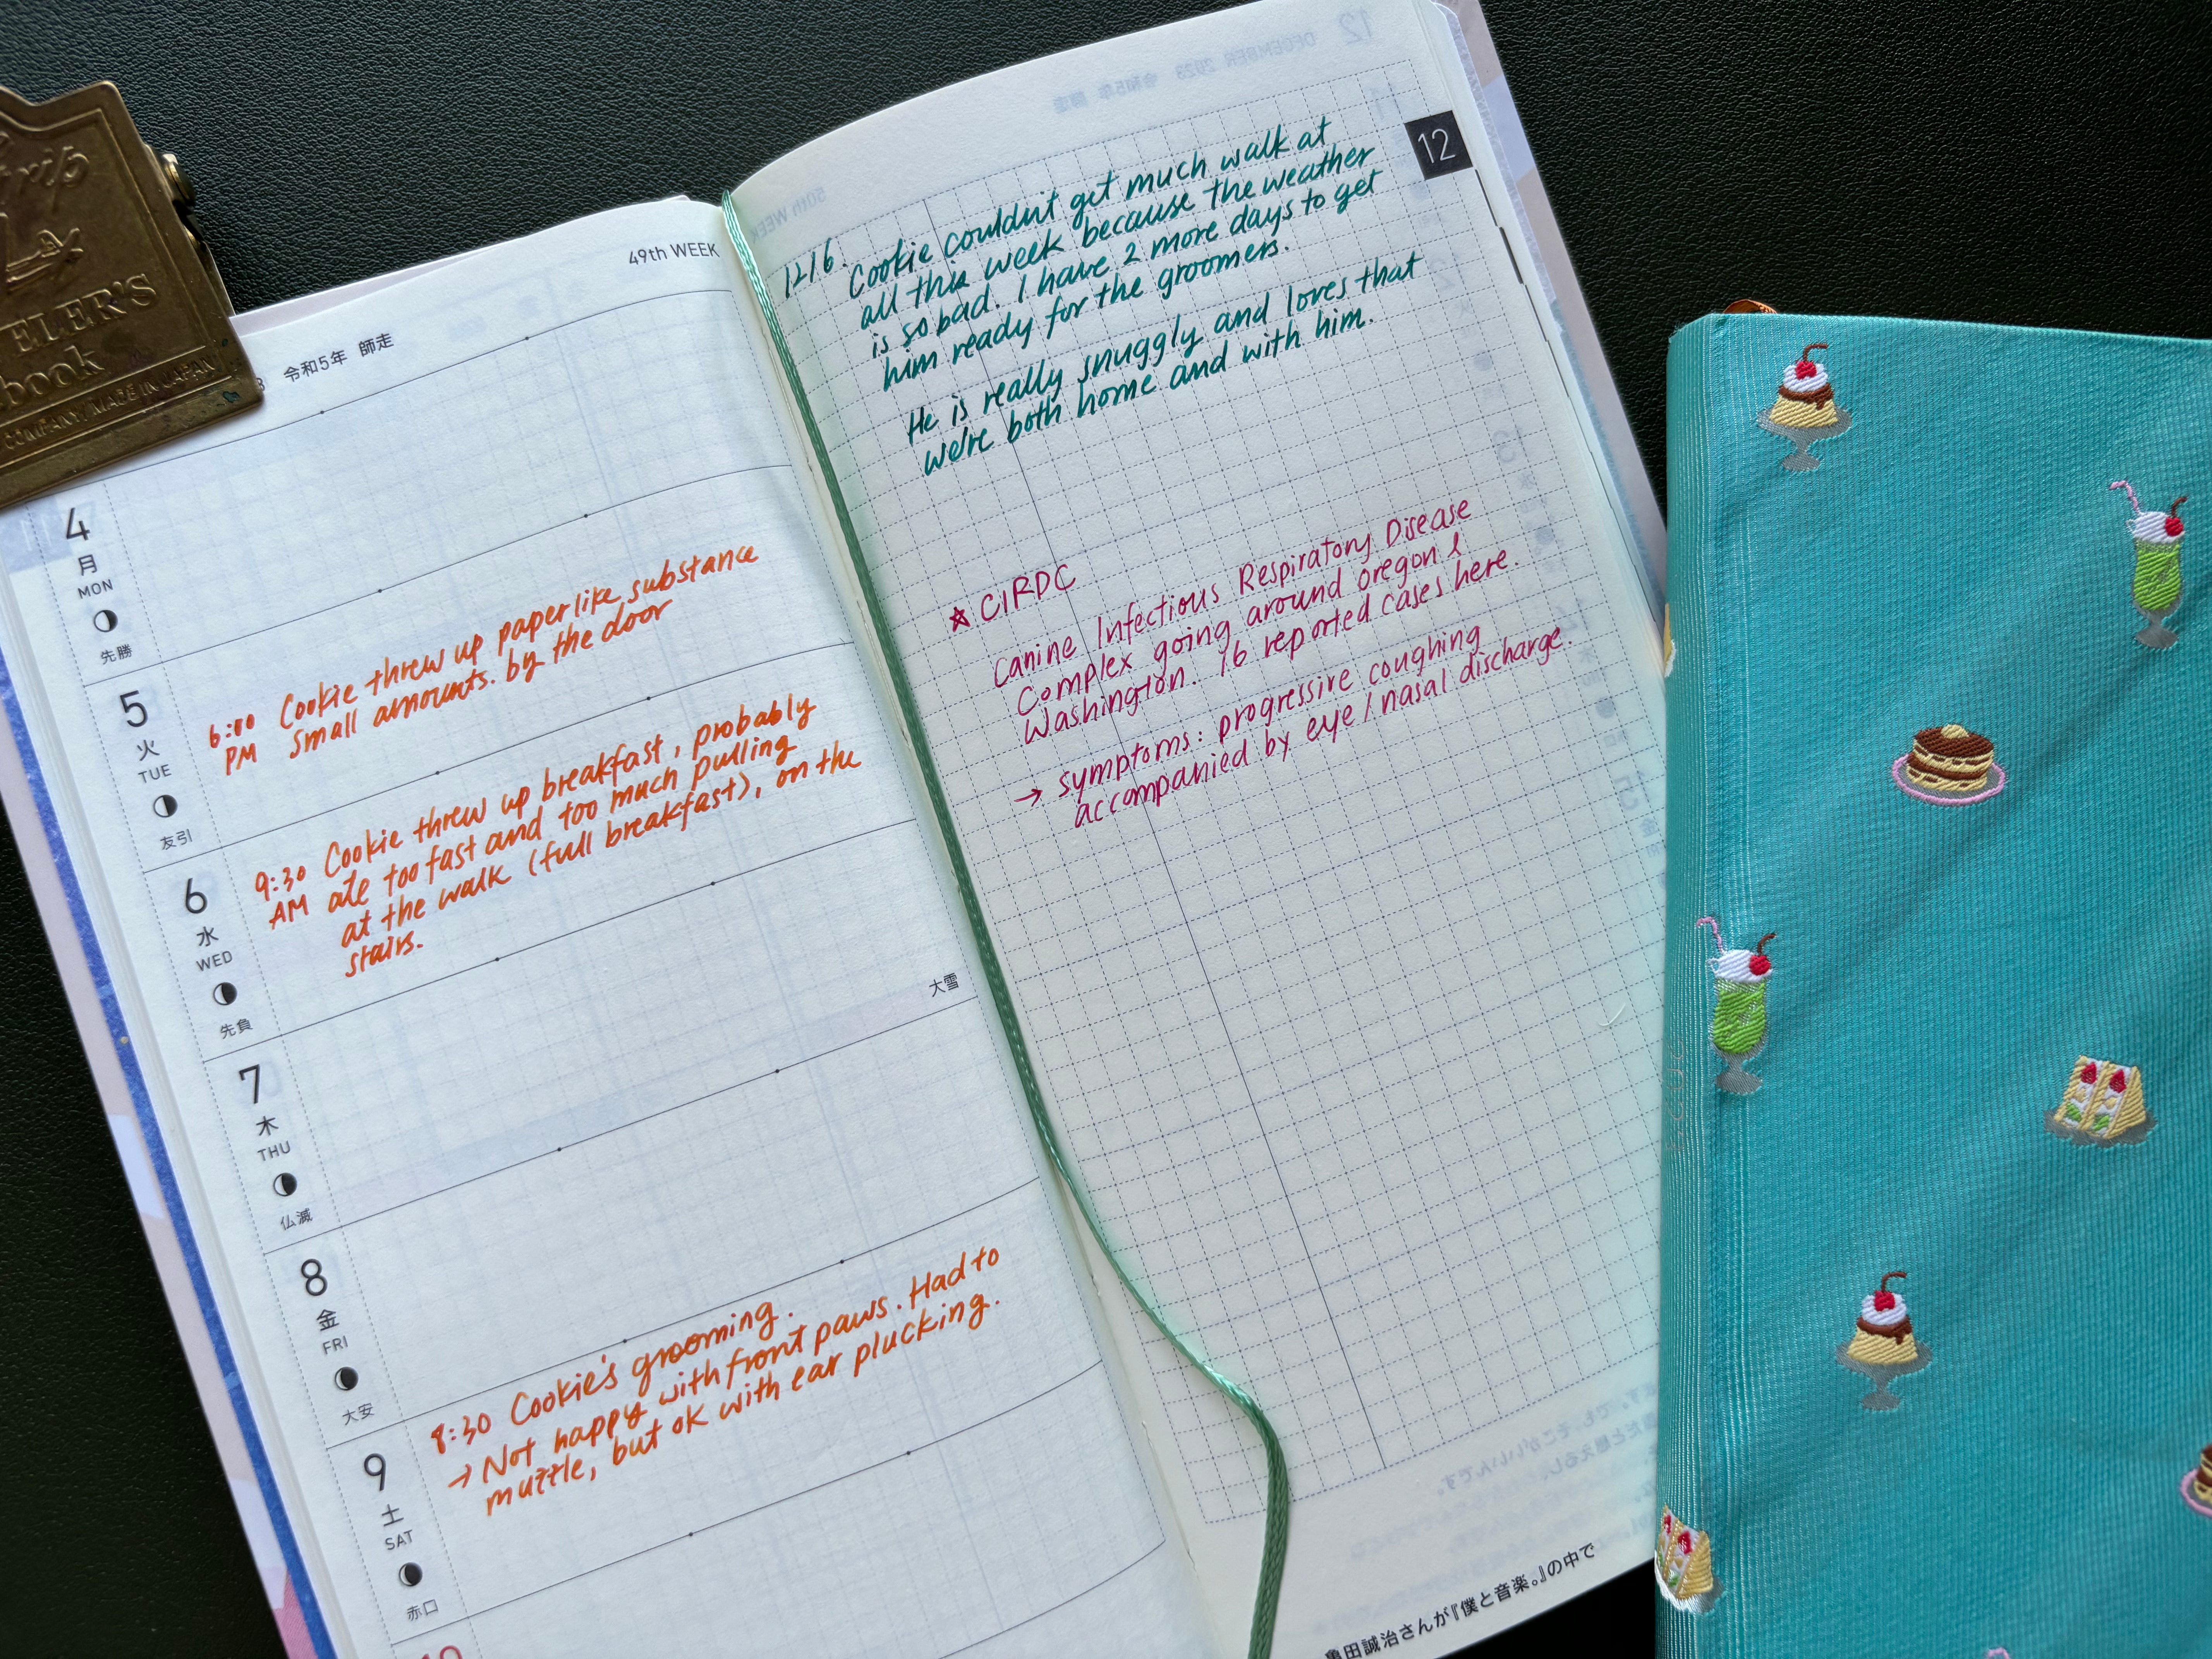 49th WEEK
令和5年 師走
4
月
MON
先勝
5
火
TUE
友引
6:00 Cookie threw up paper like substance
PM small amounts. by the door
6
水
WED
先負
9:30 Cookie threw up breakfast, probably
AM ate too fast and too much pulling
at the walk (full breakfast), on the
stairs.
7
木
THU
仏滅
大雪
8
金
FRI
大安
9
土
SAT
赤口
8:30 Cookie's grooming.
→ Not happy with front paws. Had to
muzzle, but ok with ear plucking.
10
12
12/6. Cookie couldn't get much walk at
all this week because the weather
is so bad. I have 2 more days to get
him ready for the groomers.
He is really snuggly and loves that
we're both home and with him.
☆ CIRDC
Canine Infectious Respiratory Disease
Complex going around oregon &
Washington. 16 reported cases here.
→ symptoms: progressive coughing
accompanied by eye/nasal discharge.
亀田誠治さんが『僕と音楽。』の中で
trip
ELER'S
book
COMPANY/MADE IN JAPAN